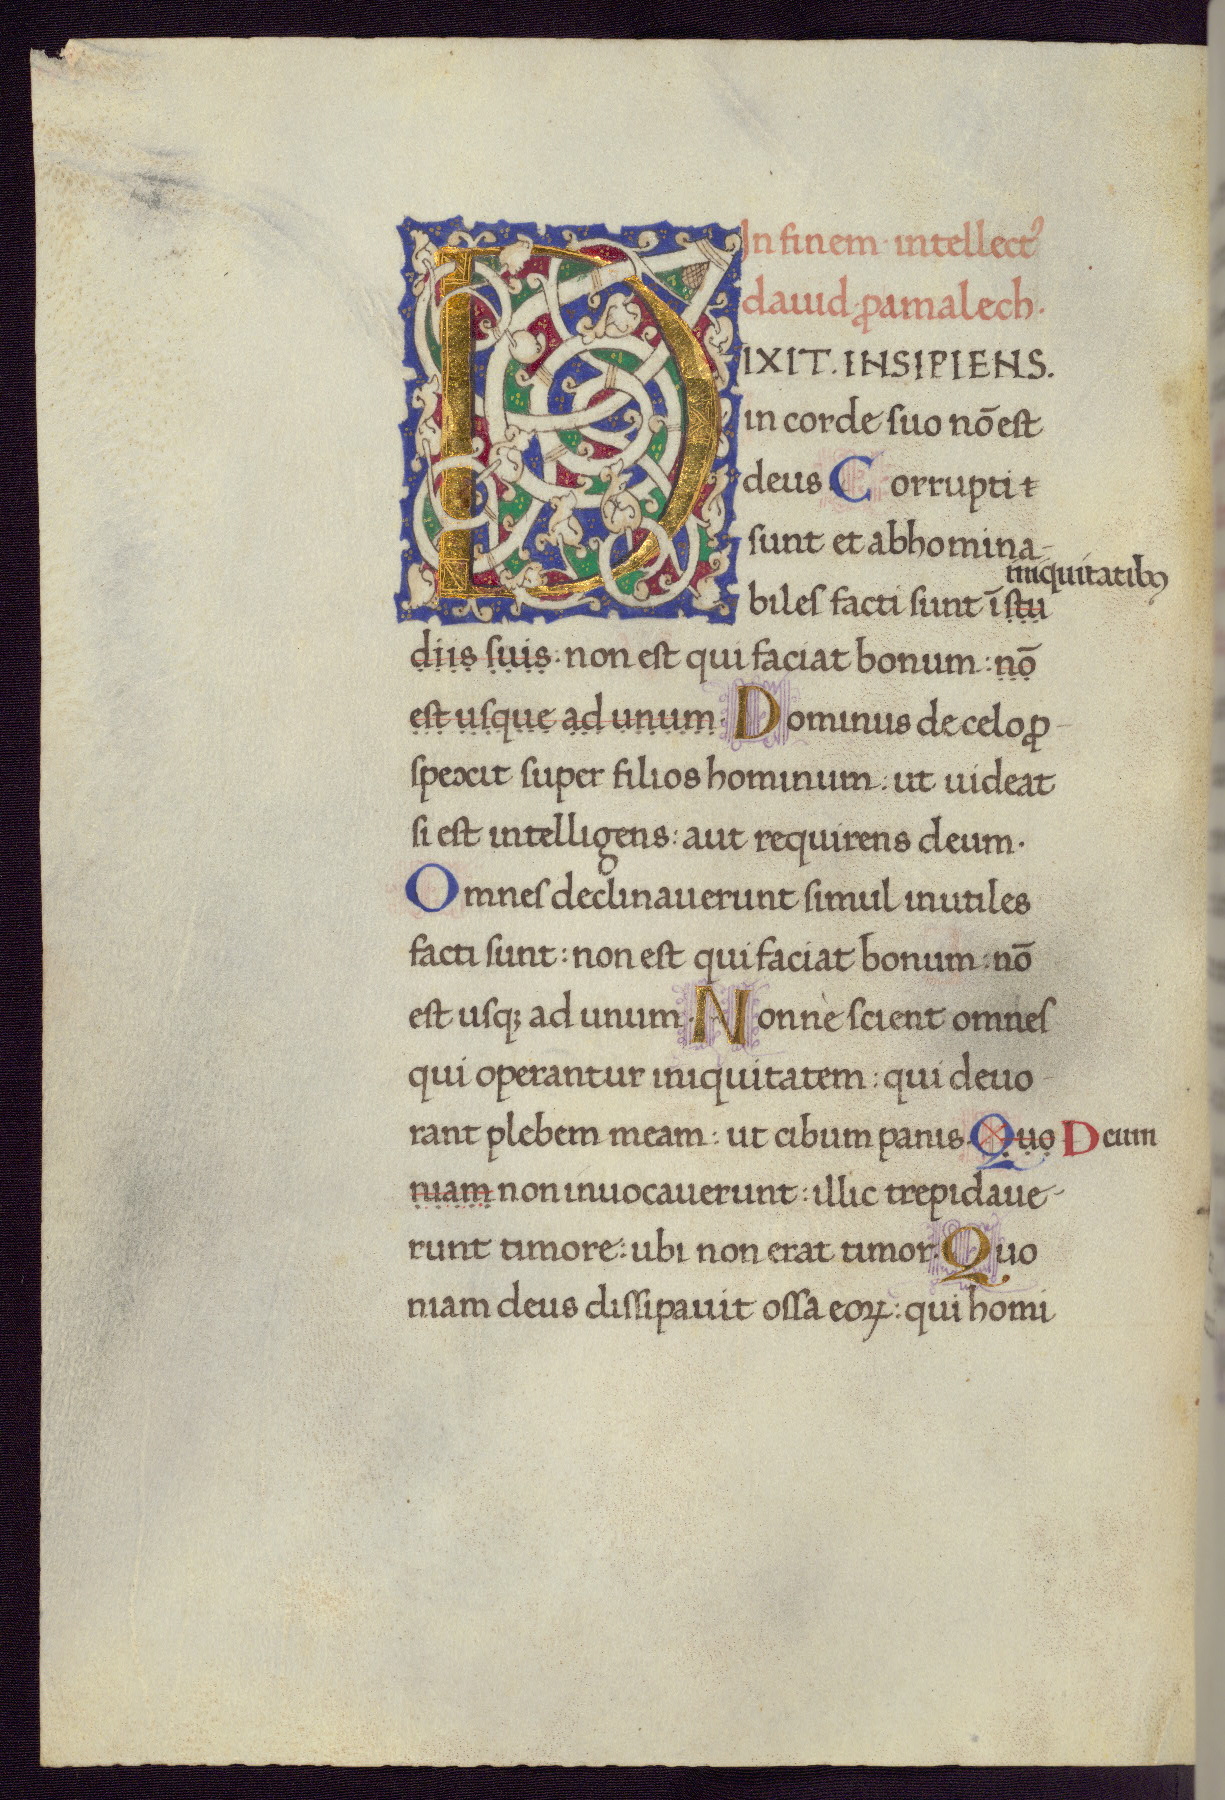 In finem intellectꝰ
dauid ꝓamalech.
DIXIT. INSIPIENS.
in corde suo nō est
deus Corrupti ſt
sunt et abhomina-
iniquitatibꝰ
biles facti sunt ī stu
diis suis: non est qui faciat bonum: nō
est usque ad unum. Dominus de celo ꝓ-
spexit super filios hominum: ut uideat
si est intelligens: aut requirens deum.
Omnes declinauerunt simul inutiles
facti sunt: non est qui faciat bonum: nō
est usqꝫ ad unum. Nonne scient omnes
qui operantur iniquitatem: qui deuo-
rant plebem meam: ut cibum panis. Quo Deum
niam non inuocauerunt: illic trepidaue-
runt timore: ubi non erat timor. Quo
niam deus dissipauit ossa eoꝝ: qui homi